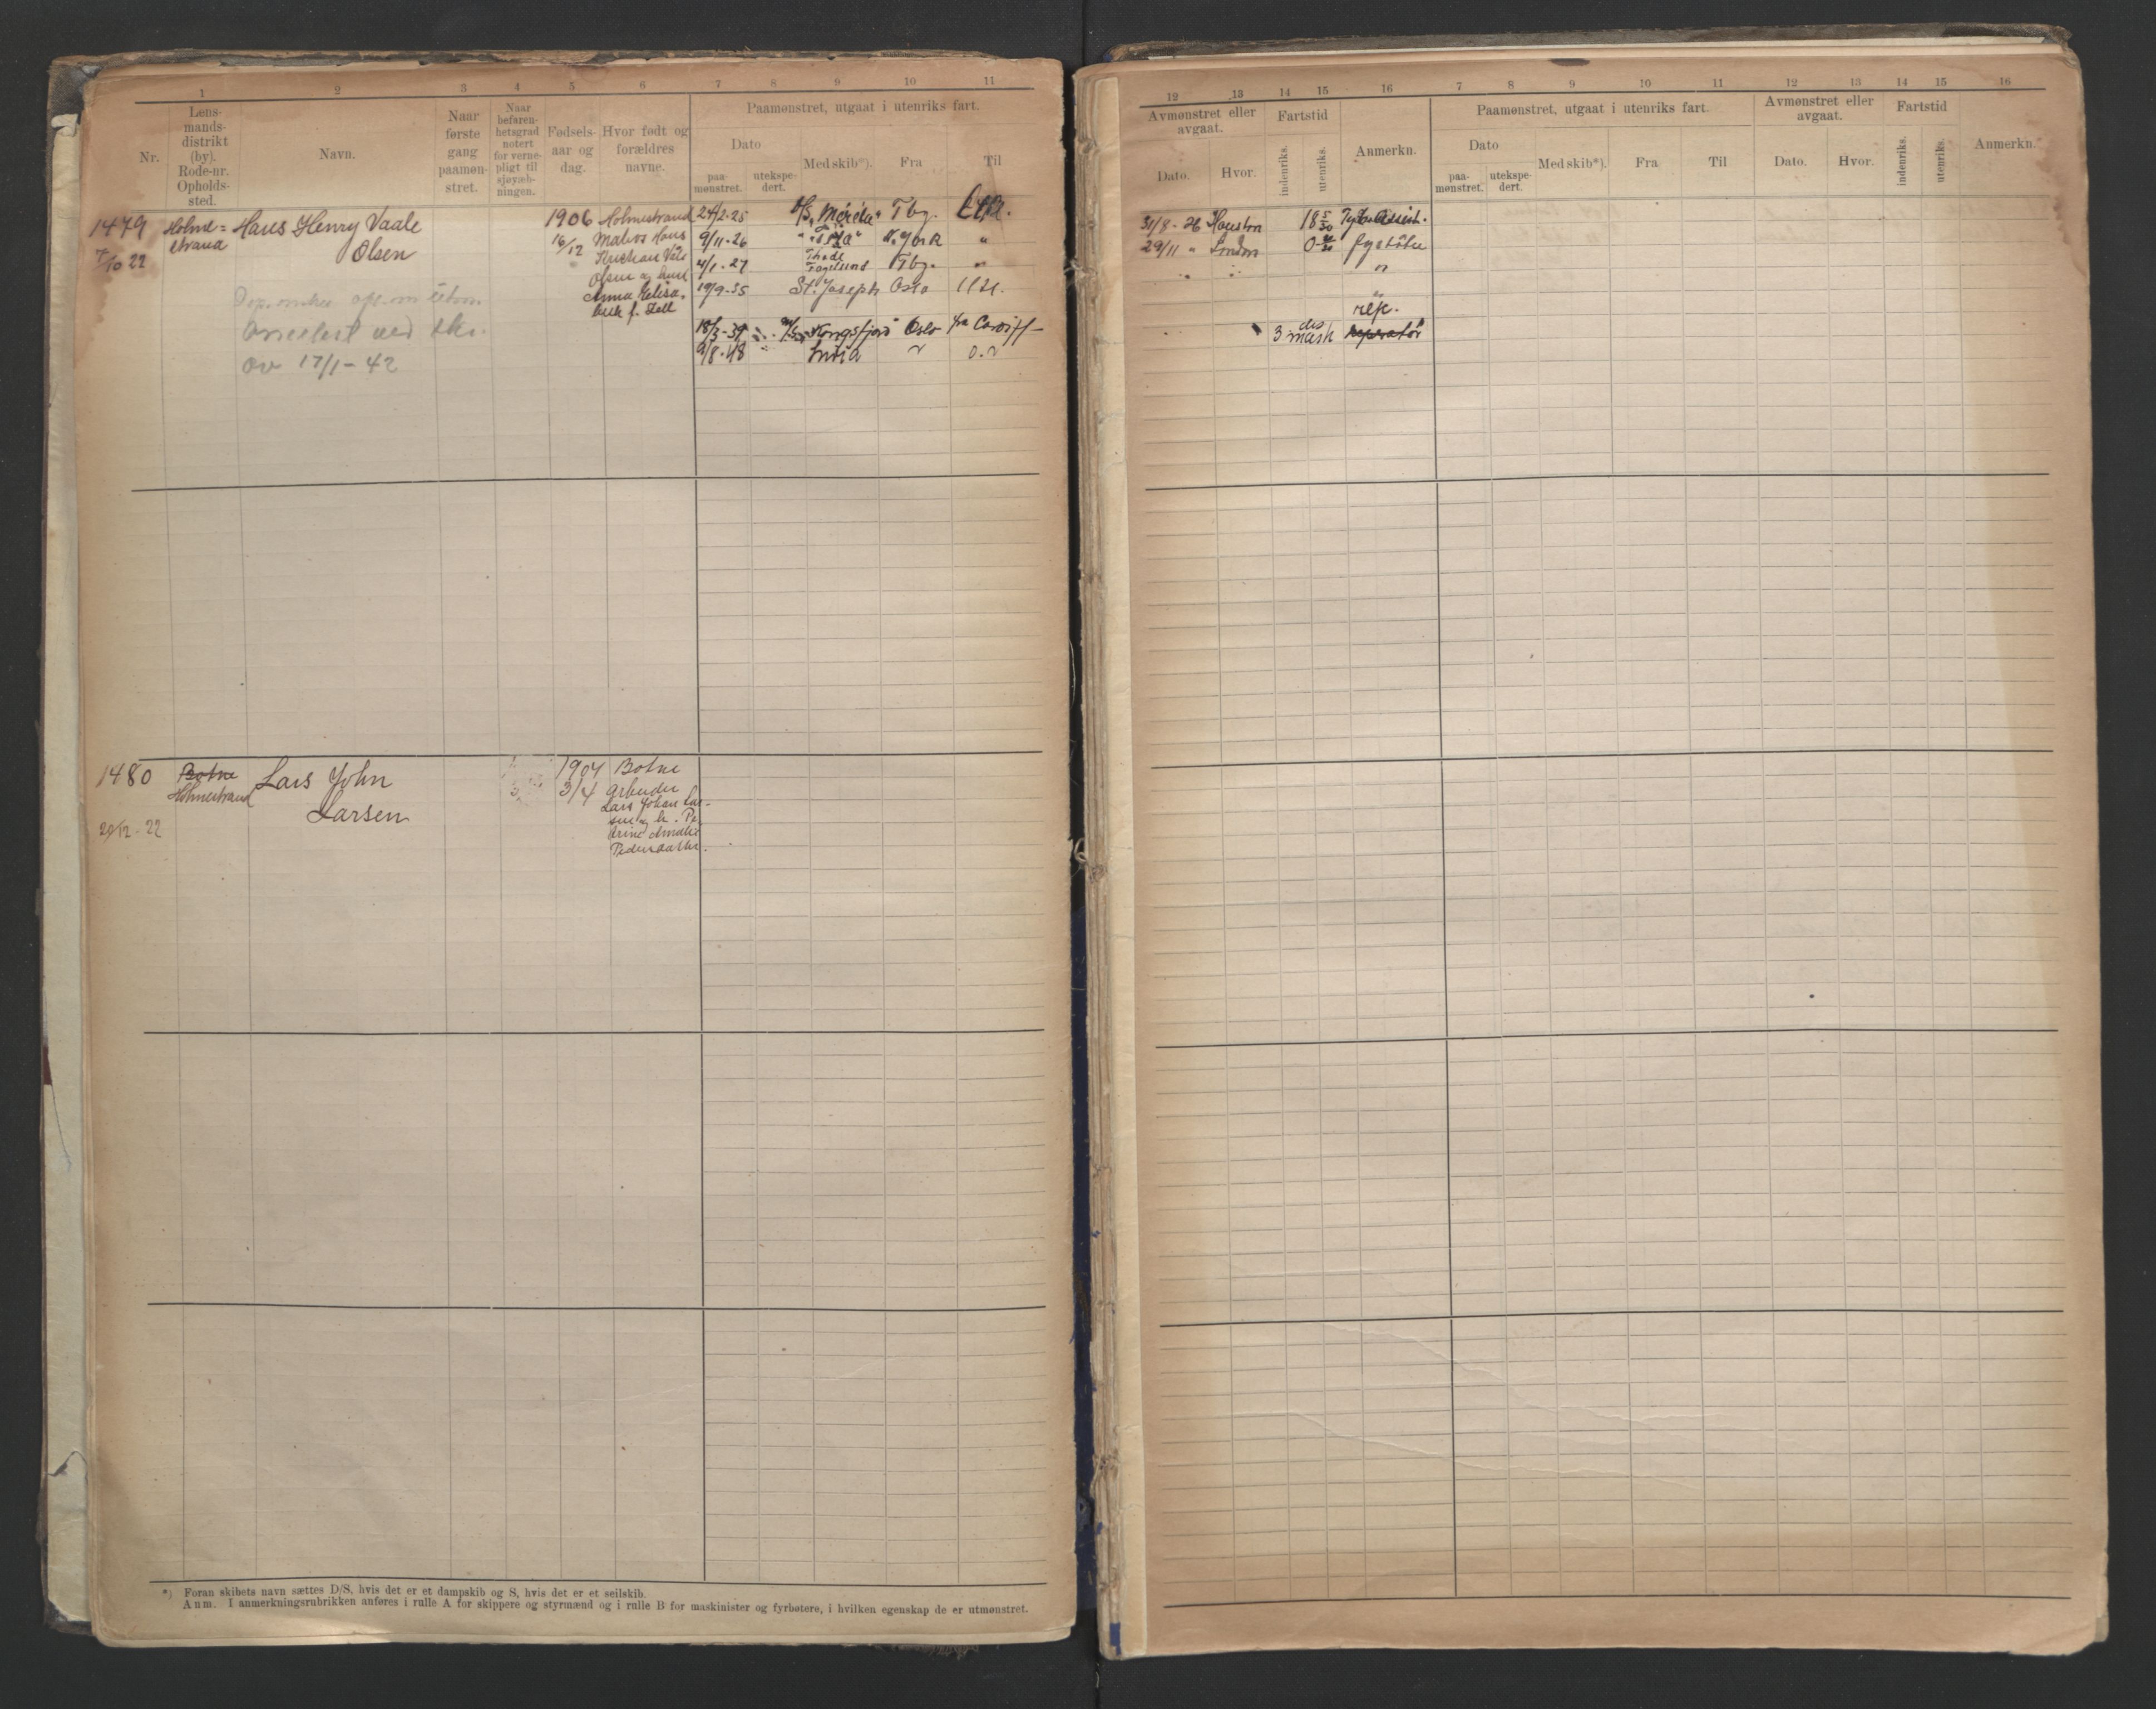 1 2 3 4 5 6 7 8 9 10 11
Nr.
Lens-
mands-
distrikt
(by).
Rode-nr.
Opholds-
sted.
Navn.
Naar
første
gang
paamøn-
stret.
Naar
befaren-
hetsgrad
notert
for verne-
pligt til
sjøvæb-
ningen.
Fødsels-
aar og
dag.
Hvor født og
forældres
navne.
Paamønstret, utgaat i utenriks fart.
Dato
paa-
mønstret.
utekspe-
dert.
Med skib*).
Fra
Til
1479
7/10 22
Holme=
strand
Hans Henry Vaale
Olsen
anmeldt ved skr.
av 17/1-42
1906
16/12
Holmestrand
Matros Hans
Kristian Vale
Olsen og hust
Anna Kelisa.
beth f. Zoll
24/2-25 "Mérida" Tbg.
9/11-26 N. York "
4/1-27 Thode Fagelund Tbg. "
19/9-35 St. Joseph Oslo
18/3-39 Kongsfjord Oslo fra Cardiff
9/8-48 India
1480
29/12-22
Botne
Holmestrand
Lars John
Larsen
1904
3/4
Botne
Arbeider
Lars Johan Lar-
sen og h. Pe-
trine Amalie
Pedersdatter.
*) Foran skibets navn sættes D/S, hvis det er et dampskib og S, hvis det er et seilskib.
Anm. I anmerkningsrubrikken anføres i rulle A for skippere og styrmænd og i rulle B for maskinister og fyrbøtere, i hvilken egenskap de er utmønstret.
12 13 14 15 16 7 8 9 10 11 12 13 14 15 16
Avmønstret eller
avgaat.
Dato.
Hvor.
Fartstid
indenriks.
utenriks.
Anmerkn.
Paamønstret, utgaat i utenriks fart.
Dato
paa-
mønstret.
utekspe-
dert.
Med skib*).
Fra
Til
Avmønstret eller
avgaat.
Dato.
Hvor.
Fartstid
indenriks.
utenriks.
Anmerkn.
31/8-26 Houston 18 5/30
29/11 " London fyrbøter
"
rep.
3 mask reperatør